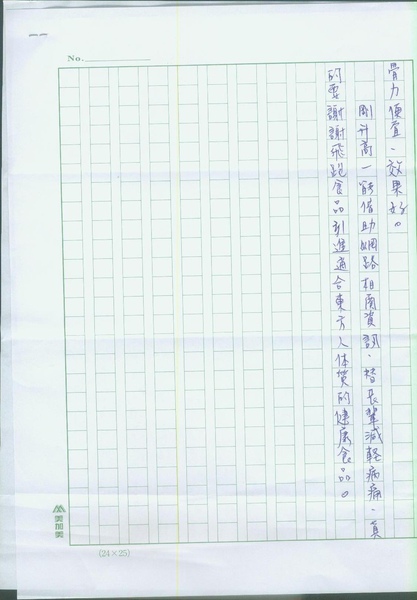 No.
骨力便宜、效果好。
剛升高一能借助網路相關資訊、替長輩減輕病痛、真
的要謝謝飛跑食品引進適合東方人体質的健康食品。
美加美
(24×25)